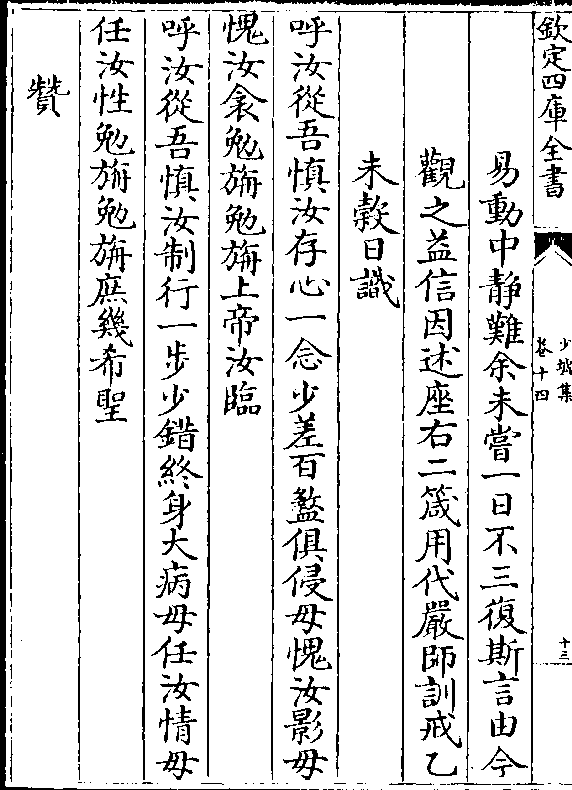 欽定四庫全書
少墟集
卷十四
十三
易動中靜難余未嘗一日不三復斯言由今
觀之益信因述座右二箴用代嚴師訓戒乙
未穀日識
呼汝從吾慎汝存心一念少差百盭俱侵毋愧汝影毋
愧汝衾勉旃勉旃上帝汝臨
呼汝從吾慎汝制行一步少錯終身大病毋任汝情毋
任汝性勉旃勉旃庶幾希聖
贊